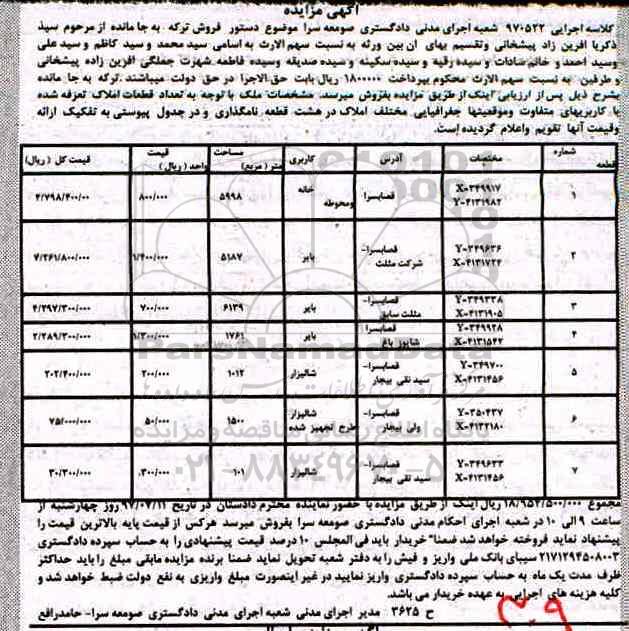 آگهی مزایده
کلاسه اجرایی ۹۷۰۵۲۲ شعبه اجرای مدنی دادگستری صومعه سرا موضوع دستور فروش ترکه به جا مانده از مرحوم سید
ذکریا افرین زاد پیشخانی وتقسیم بهای آن بین ورثه به نسبت سهم الارث به اسامی سید محمد و سید کاظم و سید علی
وسید احمد و خانم سادات و سیده رقیه و سیده سکینه و سیده صدیقه وسیده فاطمه شهرت جملگی افرین زاده پیشخانی
و طرفین به نسبت سهم الارث محکوم بپرداخت ۱۸۰۰۰۰۰ ریال بابت حق الاجرا در حق دولت میباشند .ترکه به جا مانده
بشرح ذیل پس از ارزیابی اینک از طریق مزایده بفروش میرسد. مشخصات ملک با توجه به تعداد قطعات املاک تعرفه شده
با کاربریهای متفاوت وموقعیتها جغرافیایی مختلف املاک در هشت قطعه نامگذاری و در جدول پیوستی به تفکیک ارائه
وقیمت آنها تقویم واعلام گردیده است.
شماره قطعه مختصات آدرس کاربری مساحت متر (مربع) قیمت واحد (ریال) قیمت کل (ریال)
۱ X-۳۴۹۹۱۷ Y-۴۱۳۱۹۸۲ قصابسرا خانه ومحوطه ۵۹۹۸ ۸۰۰/۰۰۰ ۴/۷۹۸/۴۰۰/۰۰
۲ Y-۳۴۹۶۳۶ X-۴۱۳۱۷۲۴ قصابسرا- شرکت مثلث بایر ۵۱۸۷ ۱/۴۰۰/۰۰۰ ۷/۲۶۱/۸۰۰/۰۰۰
۳ Y-۳۴۹۳۳۸ X-۴۱۳۱۹۰۵ قصابسرا- مثلث سابق بایر ۶۱۳۹ ۷۰۰/۰۰۰ ۴/۲۹۷/۳۰۰/۰۰۰
۴ Y-۳۴۹۹۲۸ X-۴۱۳۱۵۴۲ قصابسرا شاپور باغ بایر ۱۷۶۱ ۱/۳۰۰/۰۰۰ ۲/۲۸۹/۳۰۰/۰۰۰
۵ Y-۳۴۹۷۰۰ X-۴۱۳۱۴۵۶ قصابسرا- سید نقی بیجار شالیزار ۱۰۱۲ ۲۰۰/۰۰۰ ۲۰۲/۴۰۰/۰۰۰
۶ Y-۳۵۰۴۳۷ X-۴۱۳۲۱۸۰ قصابسرا- ولی بیجار شالیزار طرح تجهیز شده ۱۵۰۰ ۵۰/۰۰۰ ۷۵/۰۰۰/۰۰۰
۷ Y-۳۴۹۶۳۳ X-۴۱۳۱۴۵۶ قصابسرا- سید نقی بیجار شالیزار ۱۰۱ ۳۰۰/۰۰۰ ۳۰/۳۰۰/۰۰۰
مجموع ۱۸/۹۵۲/۵۰۰/۰۰۰ ریال اینک از طریق مزایده با حضور نماینده محترم دادستان در تاریخ ۹۷/۰۷/۱۱ روز چهارشنبه از
ساعت ۹ الی ۱۰ در شعبه اجرای احکام مدنی دادگستری صومعه سرا بفروش میرسد هرکس از قیمت پایه بالاترین قیمت را
پیشنهاد نماید فروخته خواهد شد ضمنا" خریدار باید فی المجلس ۱۰ درصد قیمت پیشنهادی را به حساب سپرده دادگستری
۲۱۷۱۲۹۴۵۰۸۰۰۳ سیبای بانک ملی واریز و فیش را به دفتر شعبه تحویل نماید ضمنا برنده مزایده مابقی مبلغ را باید حداکثر
ظرف مدت یک ماه به حساب سپرده دادگستری واریز نمایید در غیر اینصورت مبلغ واریزی به نفع دولت ضبط خواهد شد و
کلیه هزینه های اجرایی به عهده خریدار می باشد.
ح ۳۶۲۵ مدیر اجرای مدنی شعبه اجرای مدنی دادگستری صومعه سرا- حامدرافع
۳۰۹
ParsNamadData
پایگاه اطلاع رسانی مناقصه و مزایده
۰۲۱-۸۸۳۴۹۶۷۰-۵